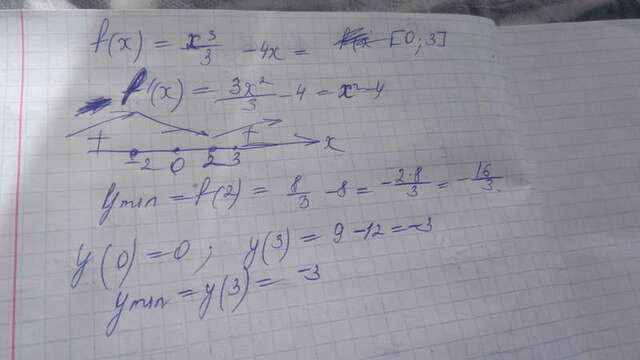 f(x) = x³/3 - 4x = [0; 3]
f'(x) = 3x²/3 - 4 = x² - 4
+ - +
-2 0 2 3 x
ymin = f(2) = 8/3 - 8 = -2·8/3 = -16/3
y(0) = 0 ; y(3) = 9 - 12 = -3
ymin = y(3) = -3